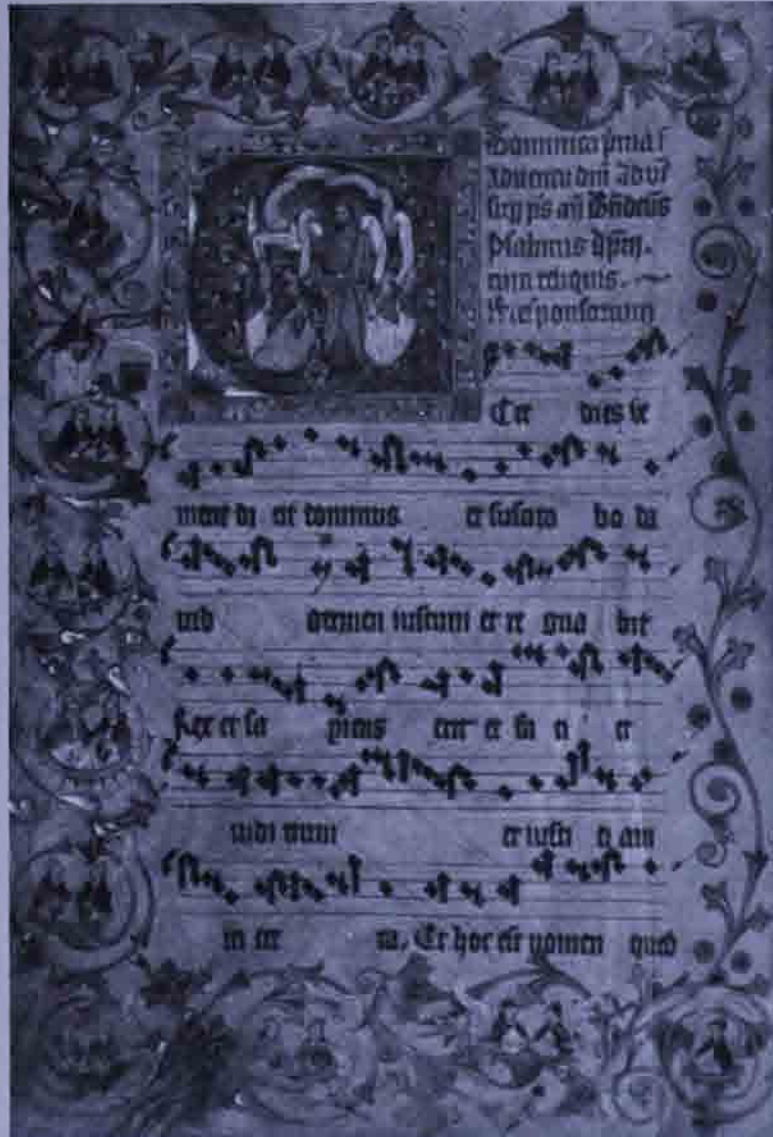 Dominica prima
Aduentu dni Ad
ps añ
Psalmus
cum reliquis.
Responsorium
Cce dies ve
nient di cit dominus et suscita bo da
uid germen iustum et re gna bit
Rex et sa piens erit et fa ci et
iudi cium et iusti ci am
in ter ra. Et hoc est nomen quod